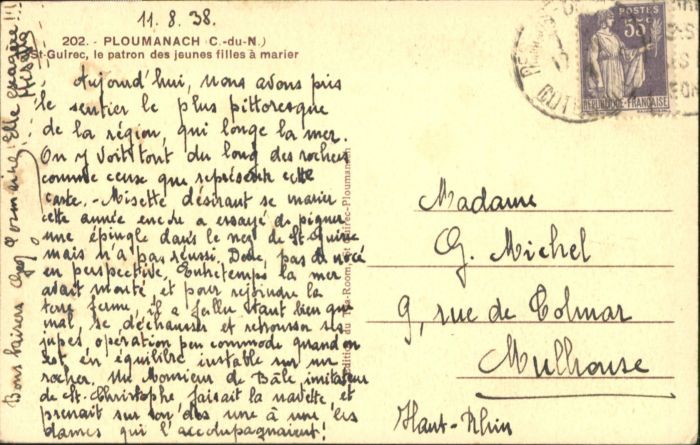 11.8.38.
202. - PLOUMANACH (C.-du-N.)
St-Guirec, le patron des jeunes filles à marier
Aujourd'hui, nous avons pris
le sentier le plus pittoresque
de la région, qui longe la mer.
On y voit tout du long des rochers
comme ceux que représente cette
carte. - Misette désirant se marier
cette année encore a essayé de piquer
une épingle dans le nez de St-Guirec
mais n'a pas réussi. Donc, pas de noce
en perspective. Entretemps la mer
avait monté et pour rejoindre la
terre ferme, il a fallu tant bien que
mal, se déchausser et retrousser ses
jupes, opération peu commode quand on
est en équilibre instable sur un
rocher. Un Monsieur de Bâle, imitateur
de St. Christophe, faisait la navette, et
prenait sur son dos une à une les
dames qui l'accompagnaient!
Bons baisers
Elle
Misette
POSTES
55c
REPUBLIQUE FRANÇAISE
Madame
G. Michel
9, rue de Colmar
Mulhouse
Haut-Rhin